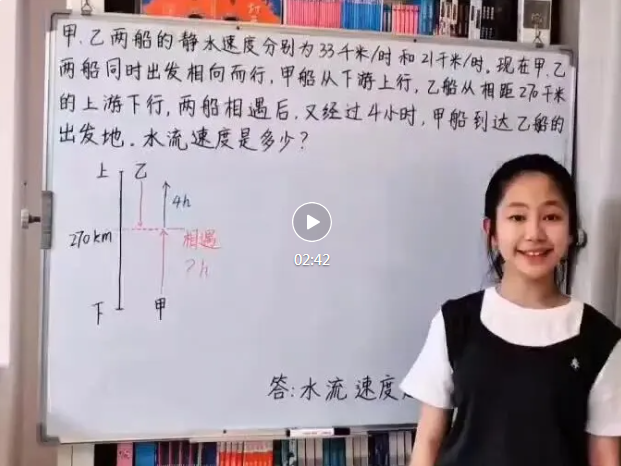 甲、乙两船的静水速度分别为33千米/时和21千米/时。现在甲、乙
两船同时出发相向而行,甲船从下游上行,乙船从相距270千米
的上游下行,两船相遇后,又经过4小时,甲船到达乙船的
出发地。水流速度是多少?
上 乙
4h
270km
相遇
?h
下 甲
02:42
答:水流速度